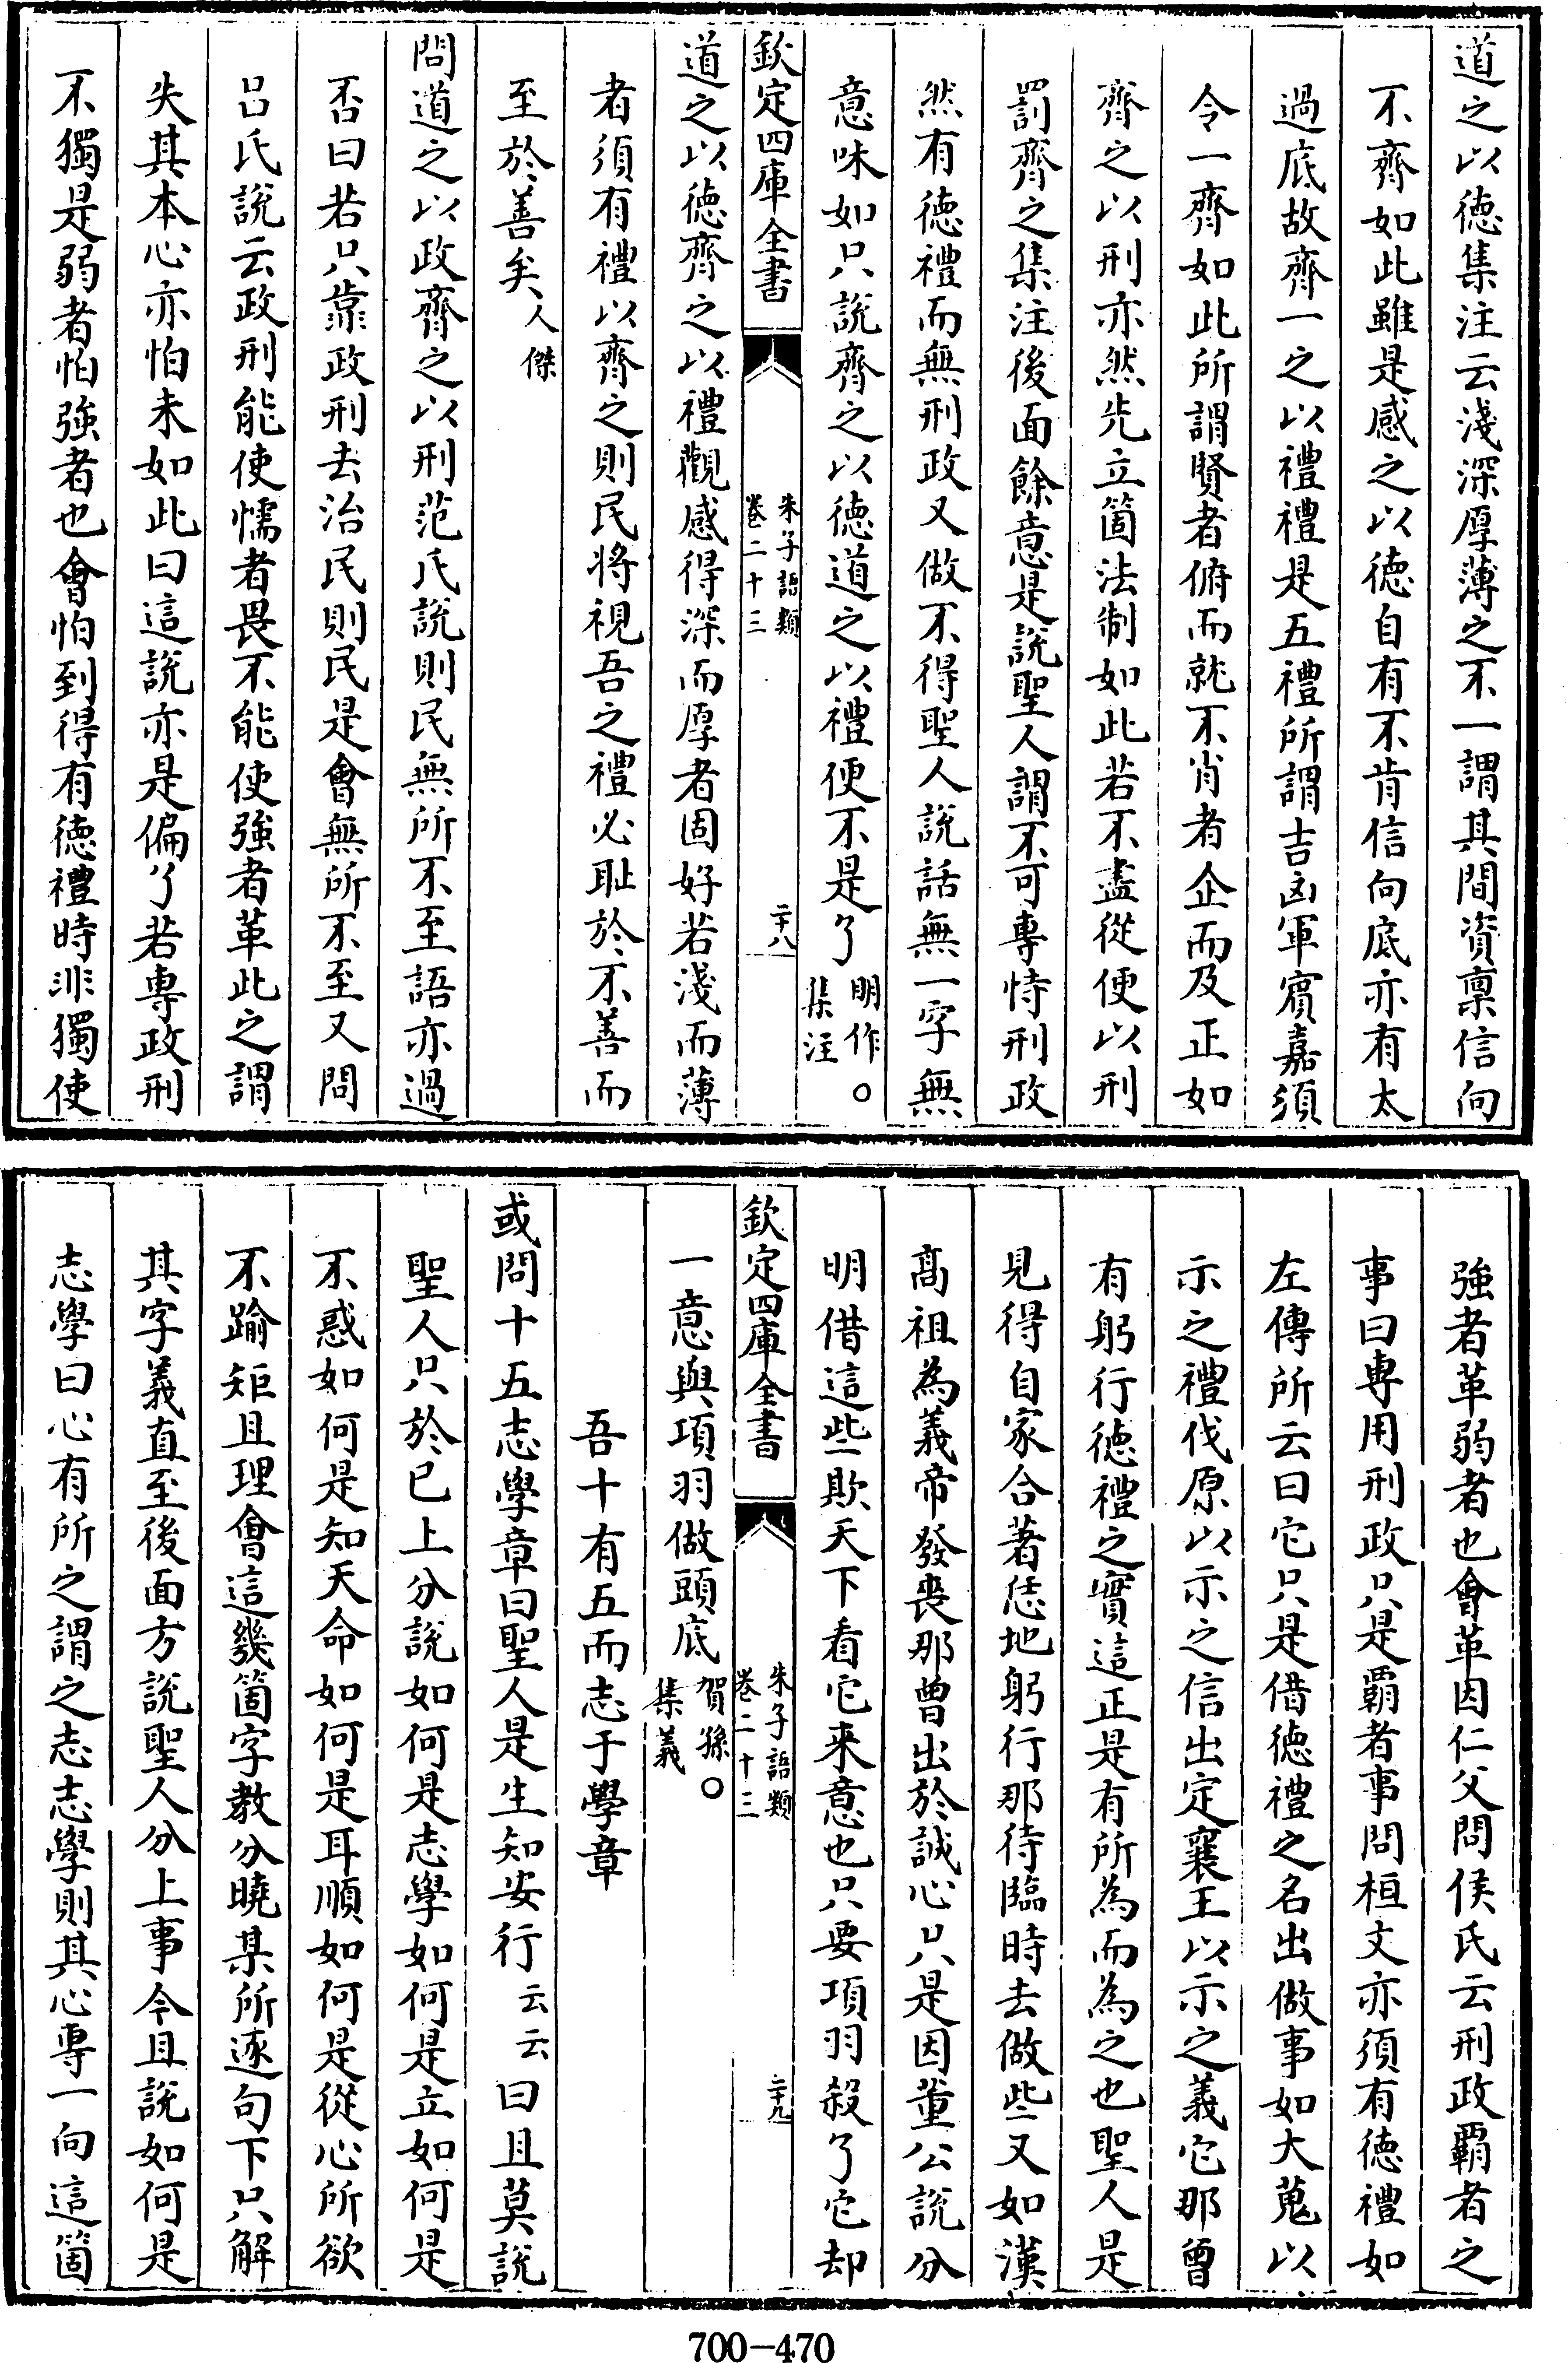 道之以徳集注云淺深厚薄之不一謂其間資禀信向
不齊如此雖是感之以徳自有不肯信向底亦有太
過底故齊一之以禮禮是五禮所謂吉凶軍賓嘉須
令一齊如此所謂賢者俯而就不肖者企而及正如
齊之以刑亦然先立箇法制如此若不盡從便以刑
罰齊之集注後面餘意是說聖人謂不可專恃刑政
然有徳禮而無刑政又做不得聖人說話無一字無
意味如只說齊之以徳道之以禮便不是了明作○
集注
欽定四庫全書
朱子語類
卷二十三
二十八
道之以徳齊之以禮觀感得深而厚者固好若淺而薄
者須有禮以齊之則民将視吾之禮必耻於不善而
至於善矣人傑
問道之以政齊之以刑范氏說則民無所不至語亦過
否曰若只靠政刑去治民則民是會無所不至又問
呂氏說云政刑能使懦者畏不能使強者革此之謂
失其本心亦怕未如此曰這說亦是偏了若專政刑
不獨是弱者怕強者也會怕到得有徳禮時非獨使
強者革弱者也會革因仁父問侯氏云刑政覇者之
事曰專用刑政只是覇者事問桓文亦須有徳禮如
左傳所云曰它只是借徳禮之名出做事如大蒐以
示之禮伐原以示之信出定襄王以示之義它那曾
有躬行徳禮之實這正是有所為而為之也聖人是
見得自家合著恁地躬行那待臨時去做些又如漢
髙祖為義帝發喪那曾出於誠心只是因董公說分
明借這些欺天下看它來意也只要項羽殺了它却
欽定四庫全書
朱子語類
卷二十三
二十九
一意與項羽做頭底賀孫○
集義
吾十有五而志于學章
或問十五志學章曰聖人是生知安行云云曰且莫說
聖人只於已上分說如何是志學如何是立如何是
不惑如何是知天命如何是耳順如何是從心所欲
不踰矩且理會這幾箇字教分曉某所逐句下只解
其字義直至後面方說聖人分上事今且說如何是
志學曰心有所之謂之志志學則其心專一向這箇
700-470